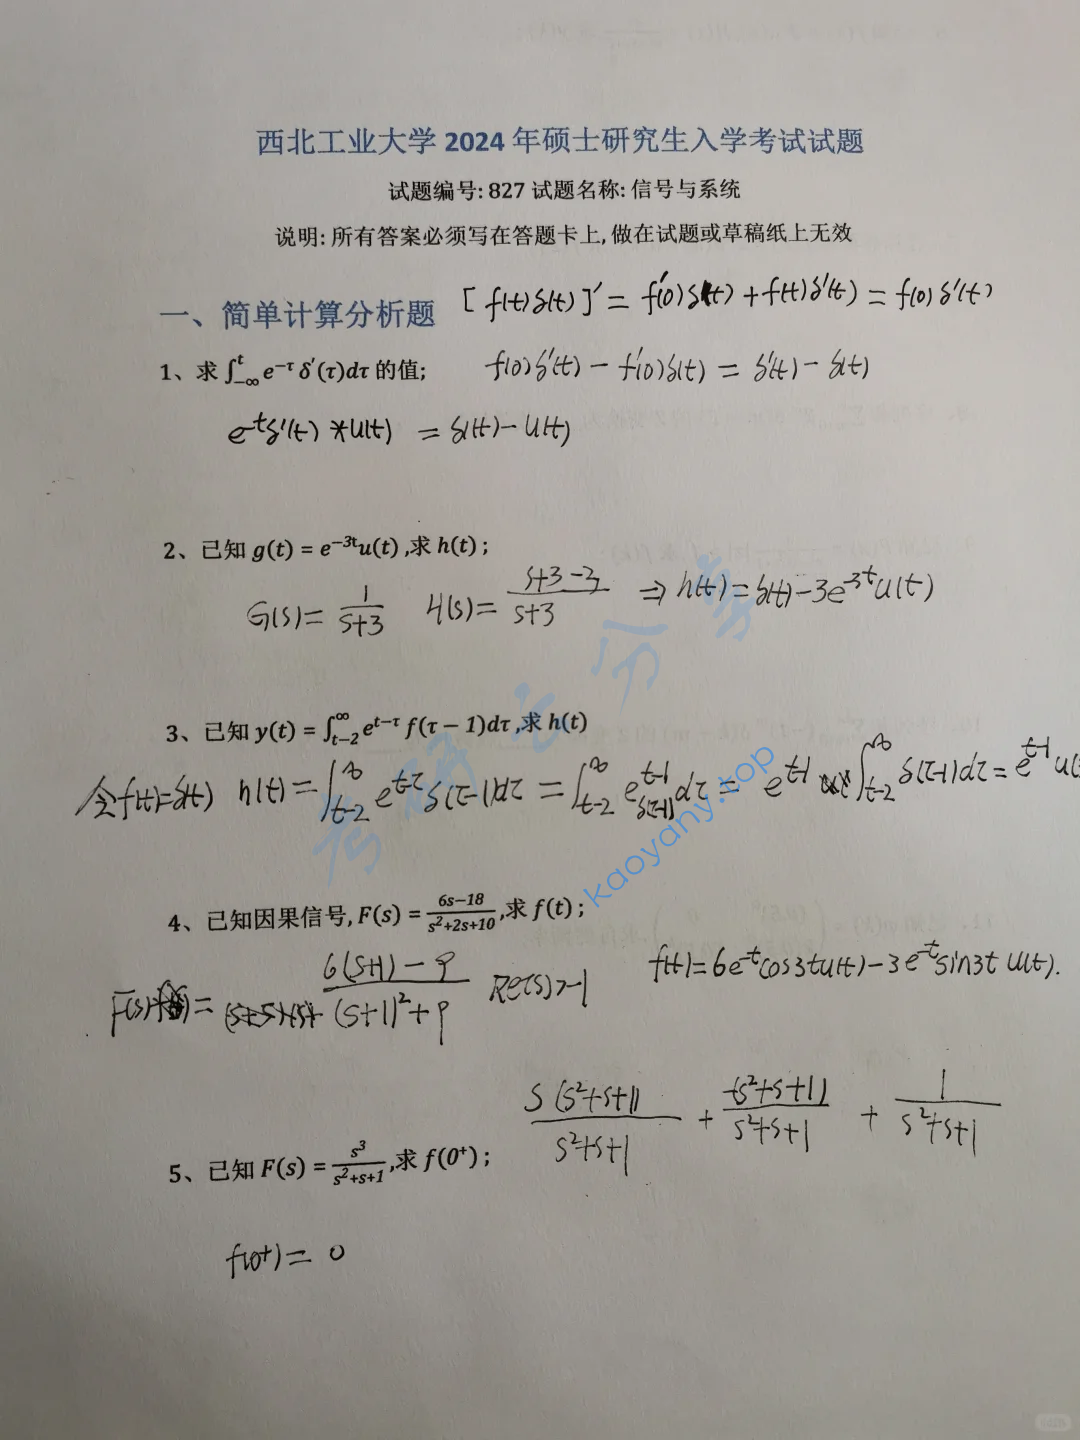 西北工业大学 2024 年硕士研究生入学考试试题
试题编号: 827 试题名称: 信号与系统
说明: 所有答案必须写在答题卡上, 做在试题或草稿纸上无效
一、简单计算分析题
[f(t)δ(t)]′ = f′(0)δ(t) + f(t)δ′(t) = f(0)δ′(t)
1、求 ∫_{-∞}^{t} e^{-τ} δ′(τ)dτ 的值;
f(0)δ′(t) - f′(0)δ(t) = δ′(t) - δ(t)
e^{-t}δ′(t) * u(t) = δ(t) - u(t)
2、已知 g(t) = e^{-3t}u(t) ,求 h(t) ;
G(s) = 1/(s+3) H(s) = (s+3-3)/(s+3) ⇒ h(t) = δ(t) - 3e^{-3t}u(t)
3、已知 y(t) = ∫_{t-2}^{∞} e^{t-τ} f(τ - 1)dτ ,求 h(t)
令f(t)=δ(t) h(t) = ∫_{t-2}^{∞} e^{t-τ} δ(τ-1)dτ = ∫_{t-2}^{∞} e^{t-1} δ(τ-1) dτ = e^{t-1} ∫_{t-2}^{∞} δ(τ-1)dτ = e^{t-1} u(
4、已知因果信号, F(s) = (6s-18)/(s²+2s+10) ,求 f(t) ;
F(s) = (6(s+1) - 9)/((s+1)²+9) Re(s)>-1 f(t) = 6e^{-t}cos3tu(t) - 3e^{-t}sin3t u(t).
s(s²+s+1)/(s²+s+1) + -(s²+s+1)/(s²+s+1) + 1/(s²+s+1)
5、已知 F(s) = s³/(s²+s+1) ,求 f(0⁺) ;
f(0⁺) = 0
考研云分享
kaoyany.top